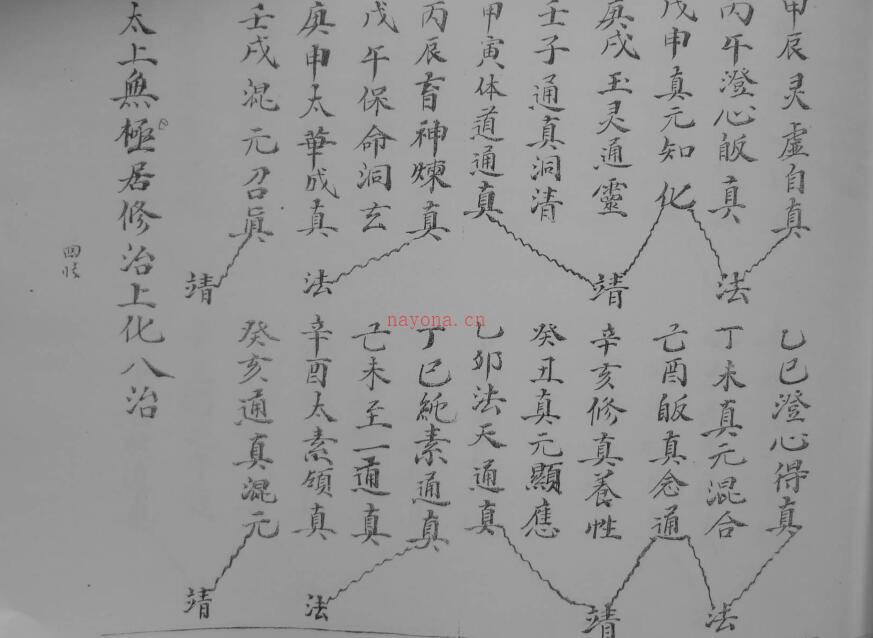 甲辰灵虚自真
丙午澄心皈真
戊申真元知化
庚戌玉灵通靈
壬子通真洞清
甲寅体道通真
丙辰育神煉真
戊午保命洞玄
庚申太華成真
壬戌混元召眞
法
靖
法
靖
乙巳澄心得真
丁未真元混合
己酉皈真念通
辛亥修真養性
癸丑真元顯應
乙卯法天通真
丁巳純素通真
己未至一通真
辛酉太素領真
癸亥通真混元
法
靖
法
靖
太上無極居修治上化八治
nayona.cn